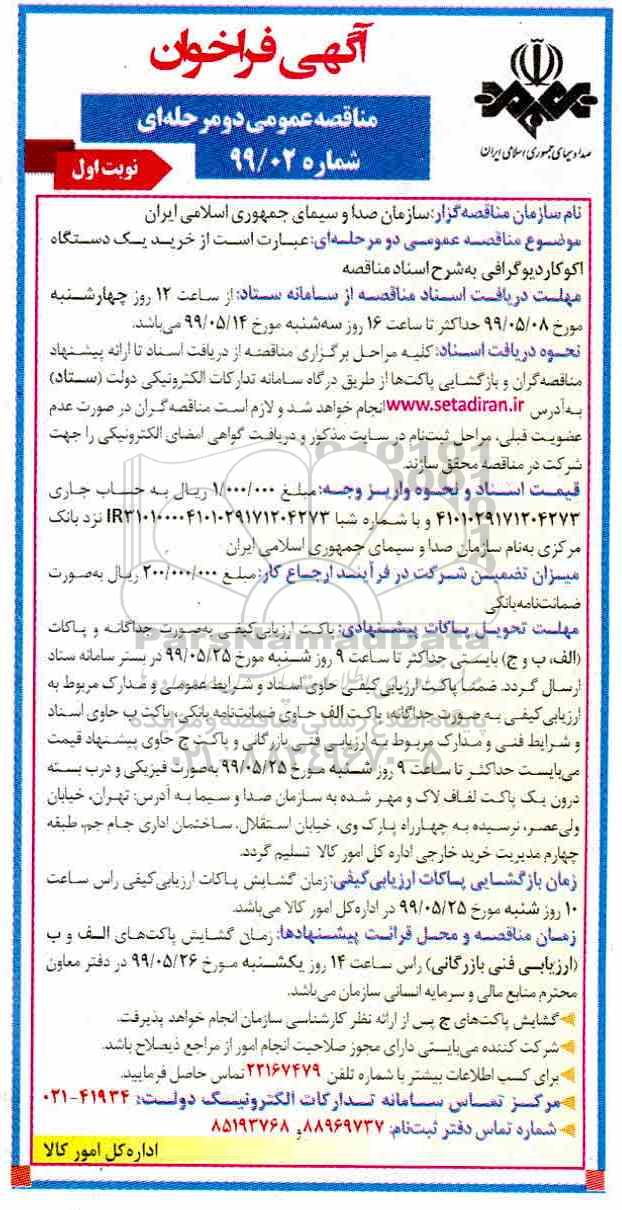 آگهی فراخوان
مناقصه عمومی دو مرحله‌ای
شماره ۹۹/۰۲
نوبت اول
صدا و سیمای جمهوری اسلامی ایران
نام سازمان مناقصه‌گزار: سازمان صدا و سیمای جمهوری اسلامی ایران
موضوع مناقصه عمومی دو مرحله‌ای: عبارت است از خرید یک دستگاه
اکوکاردیوگرافی به‌شرح اسناد مناقصه
مهلت دریافت اسناد مناقصه از سامانه ستاد: از ساعت ۱۲ روز چهارشنبه
مورخ ۹۹/۰۵/۰۸ حداکثر تا ساعت ۱۶ روز سه‌شنبه مورخ ۹۹/۰۵/۱۴ می‌باشد.
نحوه دریافت اسناد: کلیه مراحل برگزاری مناقصه از دریافت اسناد تا ارائه پیشنهاد
مناقصه‌گران و بازگشایی پاکت‌ها از طریق درگاه سامانه تدارکات الکترونیکی دولت (ستاد)
به‌آدرس www.setadiran.ir انجام خواهد شد و لازم است مناقصه‌گران در صورت عدم
عضویت قبلی، مراحل ثبت‌نام در سایت مذکور و دریافت گواهی امضای الکترونیکی را جهت
شرکت در مناقصه محقق سازند.
قیمت اسناد و نحوه واریز وجه: مبلغ ۱/۰۰۰/۰۰۰ ریال به حساب جاری
۴۱۰۱۰۲۹۱۷۱۲۰۴۲۷۳ و با شماره شبا IR۳۱۰۱۰۰۰۰۴۱۰۱۰۲۹۱۷۱۲۰۴۲۷۳ نزد بانک
مرکزی به‌نام سازمان صدا و سیمای جمهوری اسلامی ایران
میزان تضمین شرکت در فرآیند ارجاع کار: مبلغ ۲۰۰/۰۰۰/۰۰۰ ریال به‌صورت
ضمانت‌نامه‌بانکی
مهلت تحویل پاکات پیشنهادی: پاکت ارزیابی‌کیفی به‌صورت جداگانه و پاکات
(الف، ب و ج) بایستی حداکثر تا ساعت ۹ روز شنبه مورخ ۹۹/۰۵/۲۵ در بستر سامانه ستاد
ارسال گردد. ضمناً پاکت ارزیابی‌کیفی حاوی اسناد و شرایط عمومی و مدارک مربوط به
ارزیابی کیفی به صورت جداگانه، پاکت الف حاوی ضمانت‌نامه بانکی، پاکت ب حاوی اسناد
و شرایط فنی و مدارک مربوط به ارزیابی فنی بازرگانی و پاکت ج حاوی پیشنهاد قیمت
می‌بایست حداکثر تا ساعت ۹ روز شنبه مورخ ۹۹/۰۵/۲۵ به‌صورت فیزیکی و درب بسته
درون یک پاکت لفاف لاک و مهر شده به سازمان صدا و سیما به آدرس: تهران، خیابان
ولی‌عصر، نرسیده به چهارراه پارک وی، خیابان استقلال، ساختمان اداری جام جم، طبقه
چهارم مدیریت خرید خارجی اداره کل امور کالا تسلیم گردد.
زمان بازگشایی پاکات ارزیابی‌کیفی: زمان گشایش پاکات ارزیابی‌کیفی راس ساعت
۱۰ روز شنبه مورخ ۹۹/۰۵/۲۵ در اداره‌کل امور کالا می‌باشد.
زمان مناقصه و محل قرائت پیشنهادها: زمان گشایش پاکت‌های الف و ب
(ارزیابی فنی بازرگانی) راس ساعت ۱۴ روز یکشنبه مورخ ۹۹/۰۵/۲۶ در دفتر معاون
محترم منابع مالی و سرمایه انسانی سازمان می‌باشد.
گشایش پاکت‌های ج پس از ارائه نظر کارشناسی سازمان انجام خواهد پذیرفت.
شرکت کننده می‌بایستی دارای مجوز صلاحیت انجام امور از مراجع ذیصلاح باشد.
برای کسب اطلاعات بیشتر با شماره تلفن ۲۲۱۶۷۴۷۹ تماس حاصل فرمایید.
مرکز تماس سامانه تدارکات الکترونیک دولت: ۴۱۹۳۴-۰۲۱
شماره تماس دفتر ثبت‌نام: ۸۸۹۶۹۷۳۷ و ۸۵۱۹۳۷۶۸
اداره‌کل امور کالا
ParsNamadData
پایگاه اطلاع رسانی مناقصه و مزایده
۰۲۱-۸۸۳۴۹۶۷۰-۵